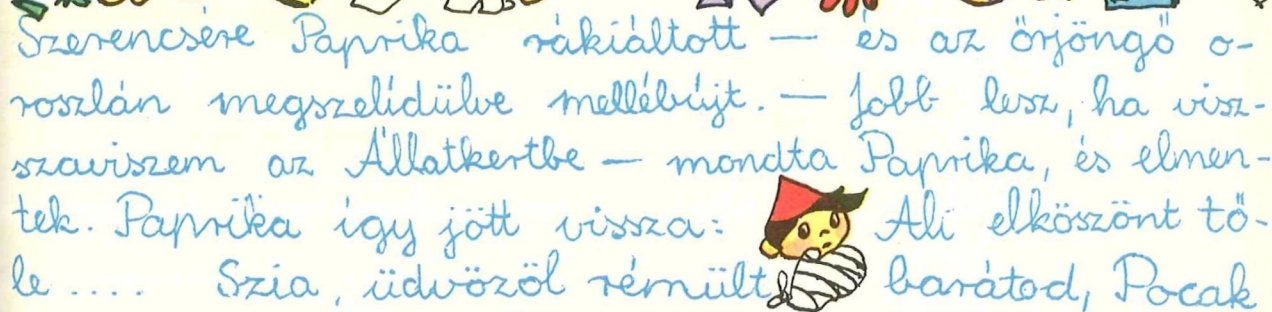 Szerencsére Paprika rákiáltott — és az őrjöngő o-
roszlán megszelídülve mellébújt. — Jobb lesz, ha visz-
szaviszem az Állatkertbe — mondta Paprika, és elmen-
tek. Paprika így jött vissza: Ali elköszönt tő-
le .... Szia, üdvözöl rémült barátod, Pocak